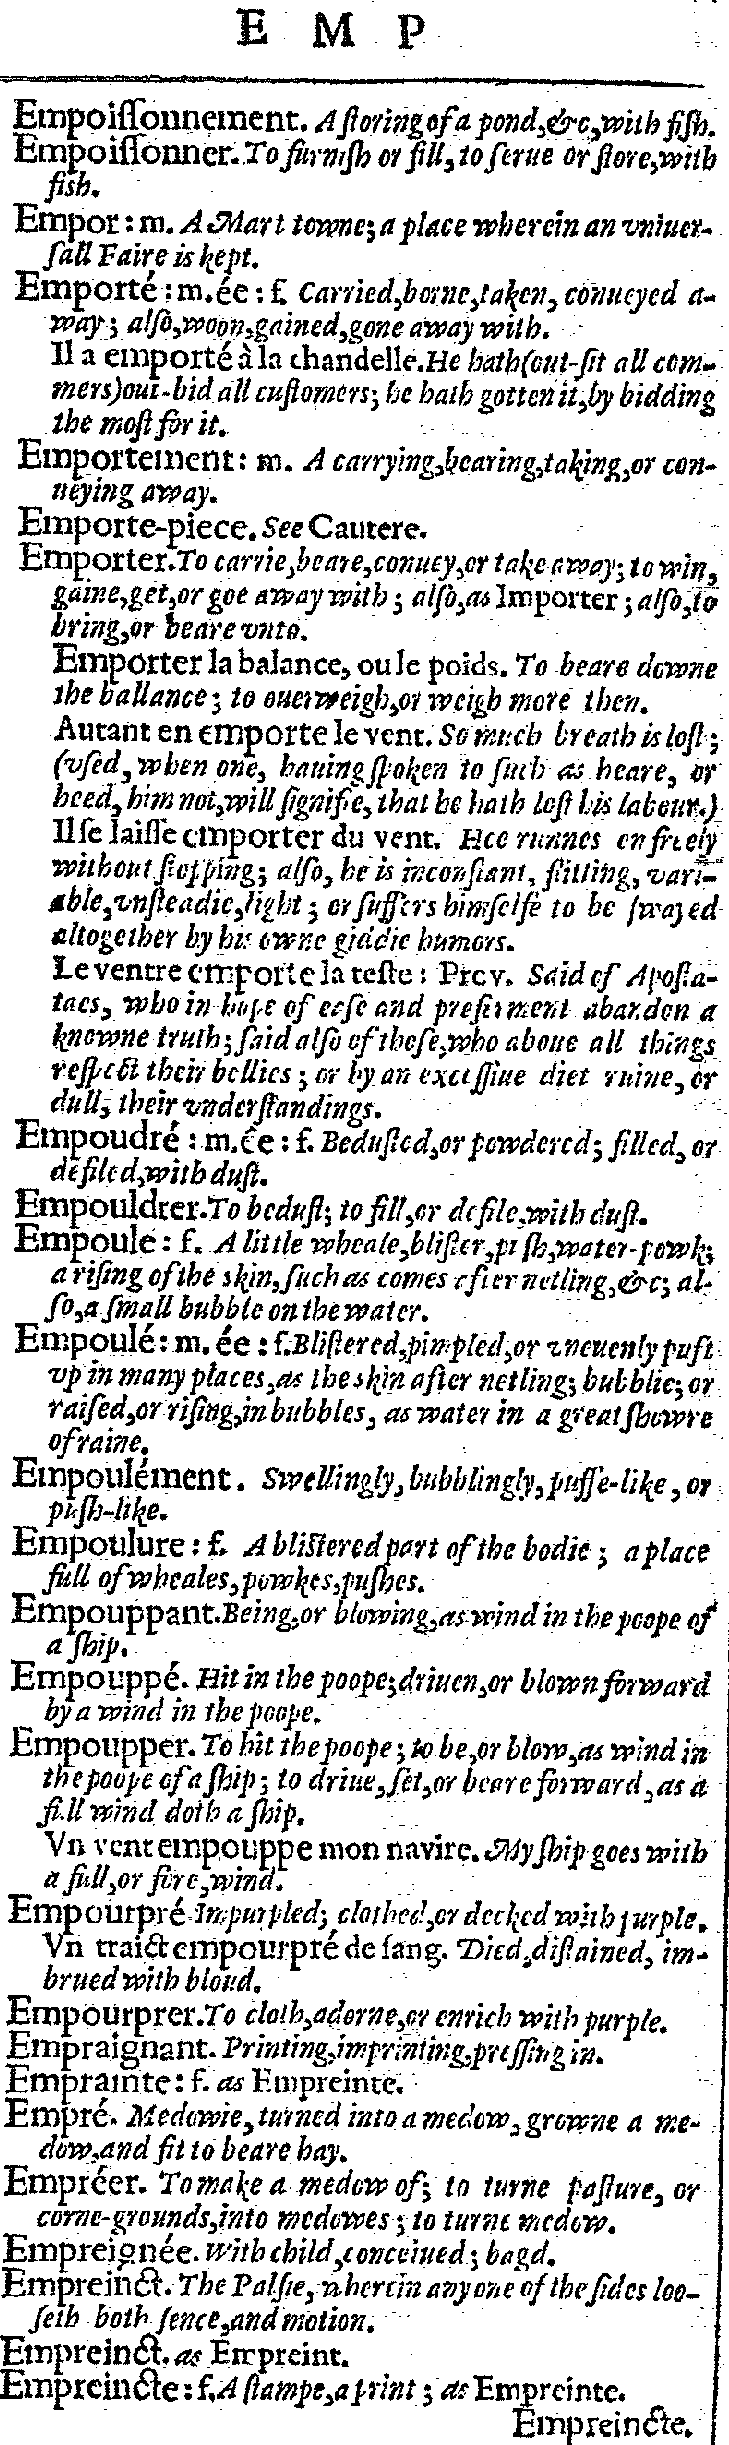 E M P
Empoiſſonnement. A ſtoring of a pond, &c, with fiſh.
Empoiſſonner. To furniſh or fill, to ſerue or ſtore, with
fish.
Empor: m. A Mart towne; a place wherein an vniuer-
ſall Faire is kept.
Emporté: m. ée: f. Carried, borne, taken, conueyed a-
way; alſo, woon, gained, gone away with.
Il a emporté à la chandelle. He hath (out-ſit all com-
mers) out-bid all cuſtomers; he hath gotten it, by bidding
the moſt for it.
Emportement: m. A carrying, bearing, taking, or con-
ueying away.
Emporte-piece. See Cautere.
Emporter. To carrie, beare, conuey, or take away; to win,
gaine, get, or goe away with; alſo, as Importer; alſo, to
bring, or beare vnto.
Emporter la balance, ou le poids. To beare downe
the ballance; to ouerweigh, or weigh more then.
Autant en emporte le vent. So much breath is loſt;
(vſed, when one, hauing ſpoken to ſuch as heare, or
heed, him not, will ſignifie, that he hath loſt his labour.)
Il ſe laiſſe emporter du vent. Hee runnes on freely
without ſtopping; alſo, he is inconſtant, flitting, vari-
able, vnſteadie, light; or ſuffers himſelfe to be ſwayed
altogether by his owne giddie humors.
Le ventre emporte la teſte: Prov. Said of Apoſta-
taes, who in hope of eeſe and preferment abandon a
knowne truth; ſaid alſo of theſe, who aboue all things
reſpect their bellies; or by an exceſſiue diet ruine, or
dull, their vnderſtandings.
Empoudré: m. ée: f. Beduſted, or powdered; filled, or
defiled, with duſt.
Empouldrer. To beduſt; to fill, or defile, with duſt.
Empoule: f. A little wheale, bliſter, puſh, water-powk;
a riſing of the skin, ſuch as comes after netling, &c; al-
ſo, a ſmall bubble on the water.
Empoulé: m. ée: f. Bliſtered, pimpled, or vneuenly puft
vp in many places, as the skin after netling; bubblie; or
raiſed, or riſing, in bubbles, as water in a great ſhowre
of raine.
Empoulément. Swellingly, bubblingly, puffe-like, or
puſh-like.
Empoulure: f. A bliſtered part of the bodie; a place
full of wheales, powkes, puſhes.
Empouppant. Being, or blowing, as wind in the poope of
a ſhip.
Empouppé. Hit in the poope; driuen, or blown forward
by a wind in the poope.
Empoupper. To hit the poope; to be, or blow, as wind in
the poope of a ſhip; to driue, ſet, or beare forward, as a
full wind doth a ſhip.
Vn vent empouppe mon navire. My ſhip goes with
a full, or fore, wind.
Empourpré. Impurpled; clothed, or decked with purple.
Vn traict empourpré de ſang. Died, diſtained, im-
brued with bloud.
Empourprer. To cloth, adorne, or enrich with purple.
Empraignant. Printing, imprinting, preſſing in.
Emprainte: f. as Empreinte.
Empré. Medowie, turned into a medow, growne a me-
dow, and fit to beare hay.
Empréer. To make a medow of; to turne paſture, or
corne-grounds, into medowes; to turne medow.
Empreignée. With child, conceiued; bagd.
Empreinct. The Palſie, wherein any one of the ſides loo-
ſeth both ſence, and motion.
Empreinct. as Empreint.
Empreincte: f. A ſtampe, a print; as Empreinte.
Empreincte.